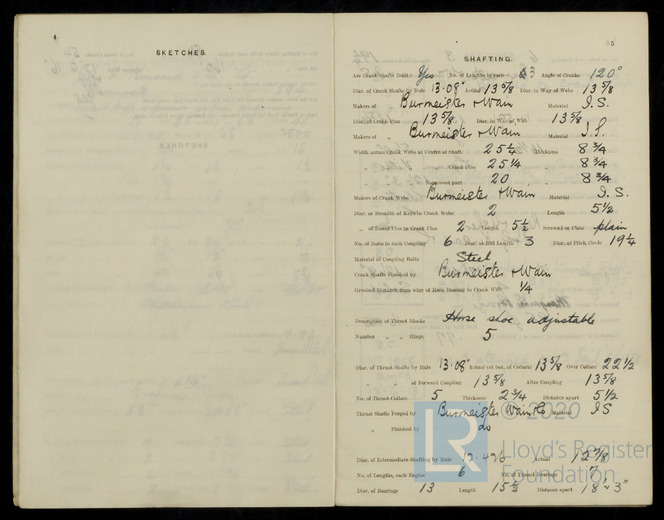 4
SKETCHES.
5
SHAFTING.
Are Crank Shafts Built? Yes No. of Lengths in each 3 Angle of Cranks 120°
Diar. of Crank Shafts by Rule 13·08" Actual 13 5/8 In Way of Webs 13 5/8
Makers of " Burmeister & Wain Material I.S.
Diar. of Crank Pins 13 5/8 Diar. in Way of Web 13 5/8
Makers of " Burmeister & Wain Material I.S.
Width across Crank Webs at Centre of Shaft 25 1/4 Thickness 8 3/4
" " " Crank Pins 25 1/4 " 8 3/4
" " Narrowest part 20 " 8 3/4
Makers of Crank Webs Burmeister & Wain Material I.S.
Diar. or Breadth of Keys in Crank Webs 2 Length 5 1/2
" of Dowel Pins in Crank Pins 2 Length 5 1/2 Screwed or Plain plain
No. of Bolts in each Coupling 6 Diar. at Mid Length 3 Diar. of Pitch Circle 19 1/4
Material of Coupling Bolts Steel
Crank Shafts Finished by Burmeister & Wain
Greatest Distance from edge of Main Bearing to Crank Web 1/4
Description of Thrust Blocks Horse shoe adjustable
Number " " Rings 5
Diar. of Thrust Shafts by Rule 13·08" Actual (at bot. of Collars) 13 5/8 Over Collars 22 1/2
" " at Forward Coupling 13 5/8 After Coupling 13 5/8
No. of Thrust Collars 5 Thickness 2 3/4 Distance apart 5 1/2
Thrust Shafts Forged by Burmeister & Wain Material I S
" " Finished by do
Diar. of Intermediate Shafting by Rule Actual 12 7/8
No. of Lengths, each Engine 6 No. of Tunnel Bearings 7
Diar. of Bearings 13 Length 15 1/2 Distance apart 18' ~ 3"
LR
© 2020
Lloyd's Register
Foundation